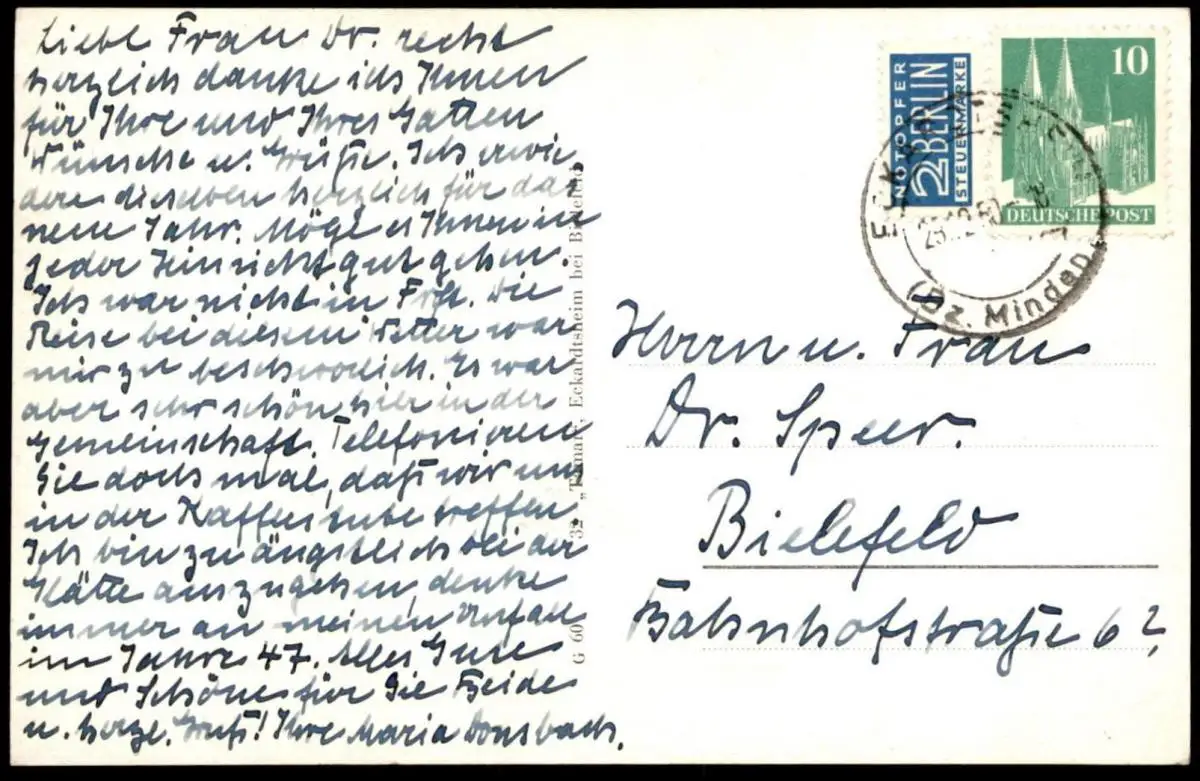 Liebe Frau Dr. recht
herzlich danke ich Ihnen
für Ihre und Ihres Gatten
Wünsche u. Grüße. Ich erwie-
dere dieselben herzlich für das
neue Jahr. Möge es Ihnen in
jeder Hinsicht gut gehen.
Ich war nicht in Frft. Die
Reise bei diesem Wetter war
mir zu beschwerlich. Es war
aber sehr schön hier in der
Gemeinschaft. Telefonieren
Sie doch mal, daß wir uns
in der Kaffeestube treffen
Ich bin zu ängstlich bei der
Glätte auszugehen, denke
immer an meinen Unfall
im Jahre 47. Alles Gute
und Schöne für Sie Beide
u. herzl. Gruß! Ihre Maria Donsbach.
G 60 32 Eckardtsheim bei Bielefeld
NOTOPFER
2 BERLIN
STEUERMARKE
10
DEUTSCHE POST
(Bz. Minden)
Herrn u. Frau
Dr. Speer.
Bielefeld
Bahnhofstraße 62